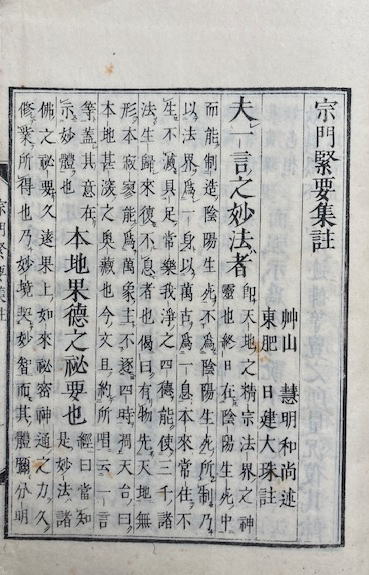 宗門緊要集註
艸山　慧明和尚述
東肥　日建大珠註
夫一言之妙法者
卽天地之精宗法界之神
靈也終日在陰陽生死中
而能制造陰陽生死不爲陰陽生死所制乃
以法界爲一身以萬古爲一息本來常住不
生不滅具足常樂我淨之四德能使三千諸
法生歸來復不息者也偈曰有物先天地無
形本寂寥能爲萬象主不逐四時凋天台曰
本地甚深之奧藏也今文且約所唱云一言
等蓋其意在
示妙體也
本地果德之祕要也
經曰當知
是妙法諸
佛之祕要久遠果上如來祕密神通之力久
修業所得也乃妙境契妙智而其體騐分明
宗門緊要集註